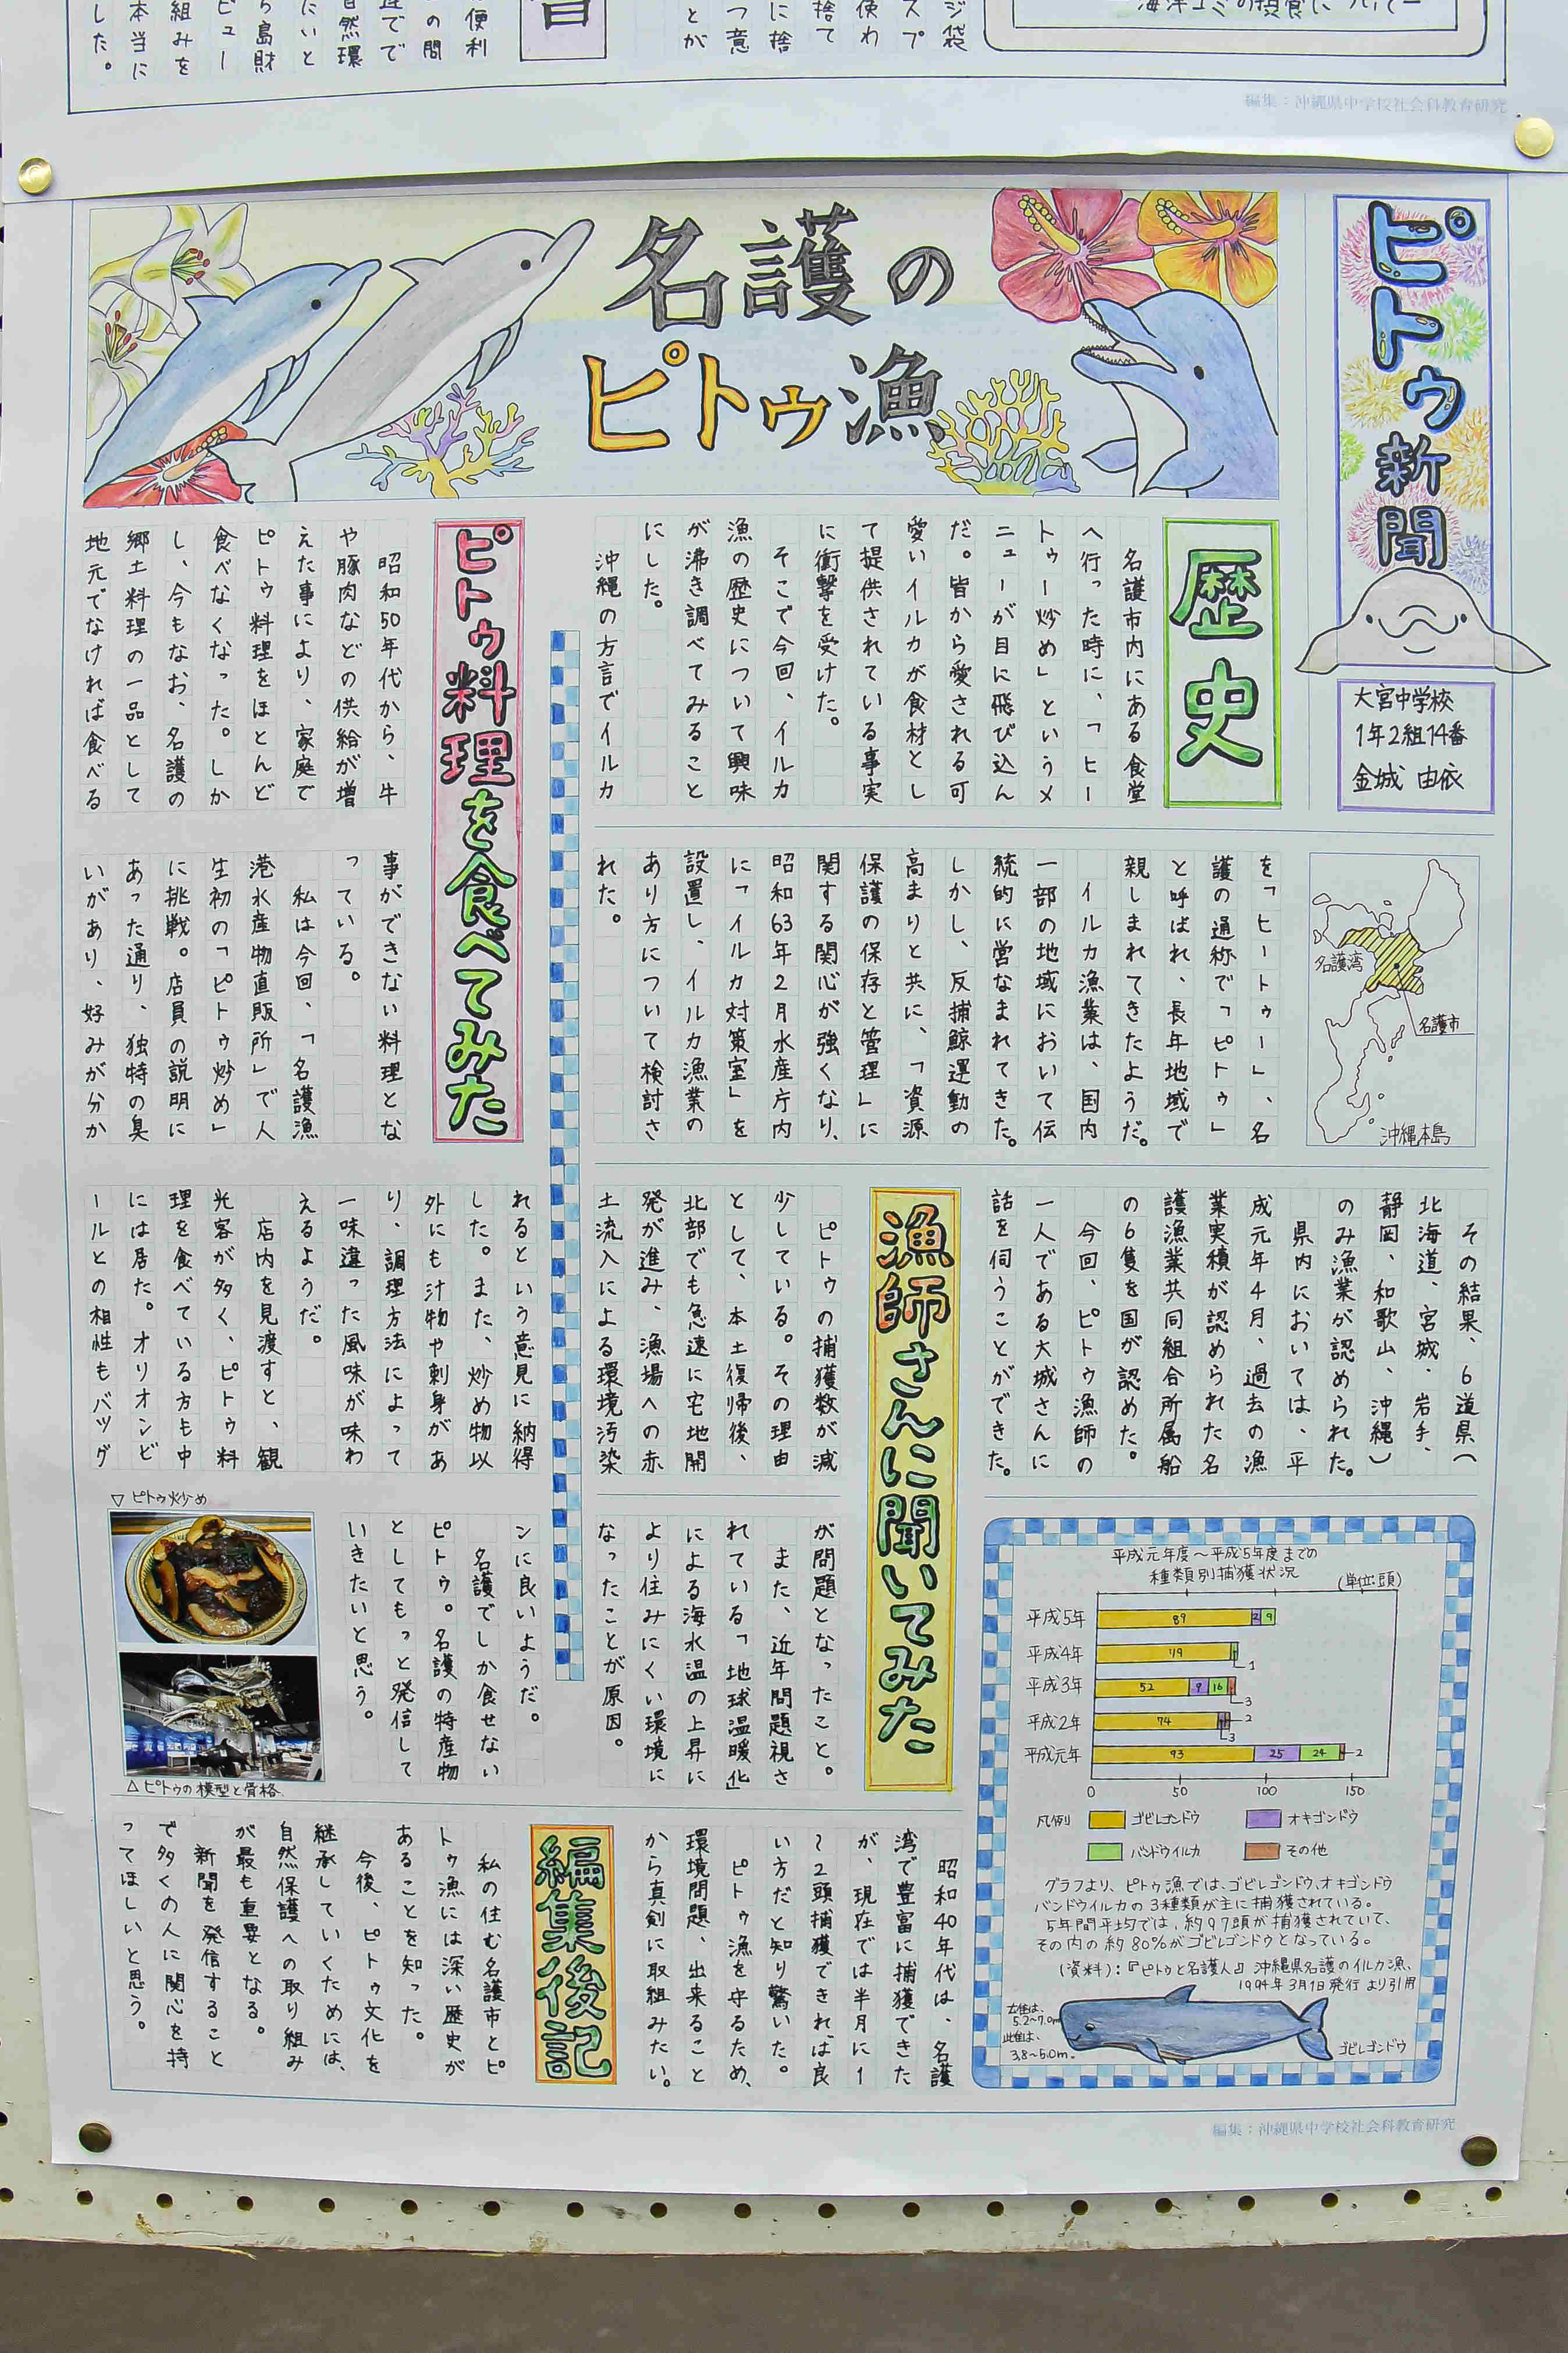 海洋ゴミの摂食について
ジ袋
スプ
使わ
捨て
に捨
つ意
とが
便利
の問
自然環
にいと
島財
ビュー
組みを
本当に
した。
編集：沖縄県中学校社会科教育研究
ピトゥ新聞
大宮中学校
1年2組14番
金城 由依
名護の
ピトゥ漁
歴史
名護市内にある食堂
へ行った時に、「ヒー
トゥー炒め」というメ
ニューが目に飛び込ん
だ。皆から愛される可
愛いイルカが食材とし
て提供されている事実
に衝撃を受けた。
そこで今回、イルカ
漁の歴史について興味
が沸き調べてみること
にした。
沖縄の方言でイルカ
名護湾
名護市
沖縄本島
を「ヒートゥー」、名
護の通称で「ピトゥ」
と呼ばれ、長年地域で
親しまれてきたようだ。
イルカ漁業は、国内
一部の地域において伝
統的に営なまれてきた。
しかし、反捕鯨運動の
高まりと共に、「資源
保護の保存と管理」に
関する関心が強くなり、
昭和63年2月水産庁内
に「イルカ対策室」を
設置し、イルカ漁業の
あり方について検討さ
れた。
その結果、6道県（
北海道、宮城、岩手、
静岡、和歌山、沖縄）
のみ漁業が認められた。
県内においては、平
成元年4月、過去の漁
業実績が認められた名
護漁業共同組合所属船
の6隻を国が認めた。
今回、ピトゥ漁師の
一人である大城さんに
話を伺うことができた。
漁師さんに聞いてみた
ピトゥの捕獲数が減
少している。その理由
として、本土復帰後、
北部でも急速に宅地開
発が進み、漁場への赤
土流入による環境汚染
が問題となったこと。
また、近年問題視さ
れている「地球温暖化」
による海水温の上昇に
より住みにくい環境に
なったことが原因。
昭和40年代は、名護
湾で豊富に捕獲できた
が、現在では半月に1
～2頭捕獲できれば良
い方だと知り驚いた。
ピトゥ漁を守るため、
環境問題、出来ること
から真剣に取組みたい。
平成元年度～平成5年度までの
種類別捕獲状況
(単位:頭)
平成5年 89 2 9
平成4年 79 1
平成3年 52 9 16 3
平成2年 74 3 2
平成元年 93 25 24 2
0 50 100 150
凡例 ゴビレゴンドウ オキゴンドウ
バンドウイルカ その他
グラフより、ピトゥ漁では、ゴビレゴンドウ、オキゴンドウ
バンドウイルカの3種類が主に捕獲されている。
5年間平均では、約97頭が捕獲されていて、
その内の約80%がゴビレゴンドウとなっている。
(資料):『ピトゥと名護人』沖縄県名護のイルカ漁、
1994年3月1日発行より引用
5.2～7.0m
3.8～5.0m。
ゴビレゴンドウ
ピトゥ料理を食べてみた
昭和50年代から、牛
や豚肉などの供給が増
えた事により、家庭で
ピトゥ料理をほとんど
食べなくなった。しか
し、今もなお、名護の
郷土料理の一品として
地元でなければ食べる
事ができない料理とな
っている。
私は今回、「名護漁
港水産物直販所」で人
生初の「ピトゥ炒め」
に挑戦。店員の説明に
あった通り、独特の臭
いがあり、好みが分か
れるという意見に納得
した。また、炒め物以
外にも汁物や刺身があ
り、調理方法によって
一味違った風味が味わ
えるようだ。
店内を見渡すと、観
光客が多く、ピトゥ料
理を食べている方も中
には居た。オリオンビ
ールとの相性もバツグ
ンに良いようだ。
名護でしか食せない
ピトゥ。名護の特産物
としてもっと発信して
いきたいと思う。
▽ピトゥ炒め
△ピトゥの模型と骨格
編集後記
私の住む名護市とピ
トゥ漁には深い歴史が
あることを知った。
今後、ピトゥ文化を
継承していくためには、
自然保護への取り組み
が最も重要となる。
新聞を発信すること
で多くの人に関心を持
ってほしいと思う。
編集：沖縄県中学校社会科教育研究